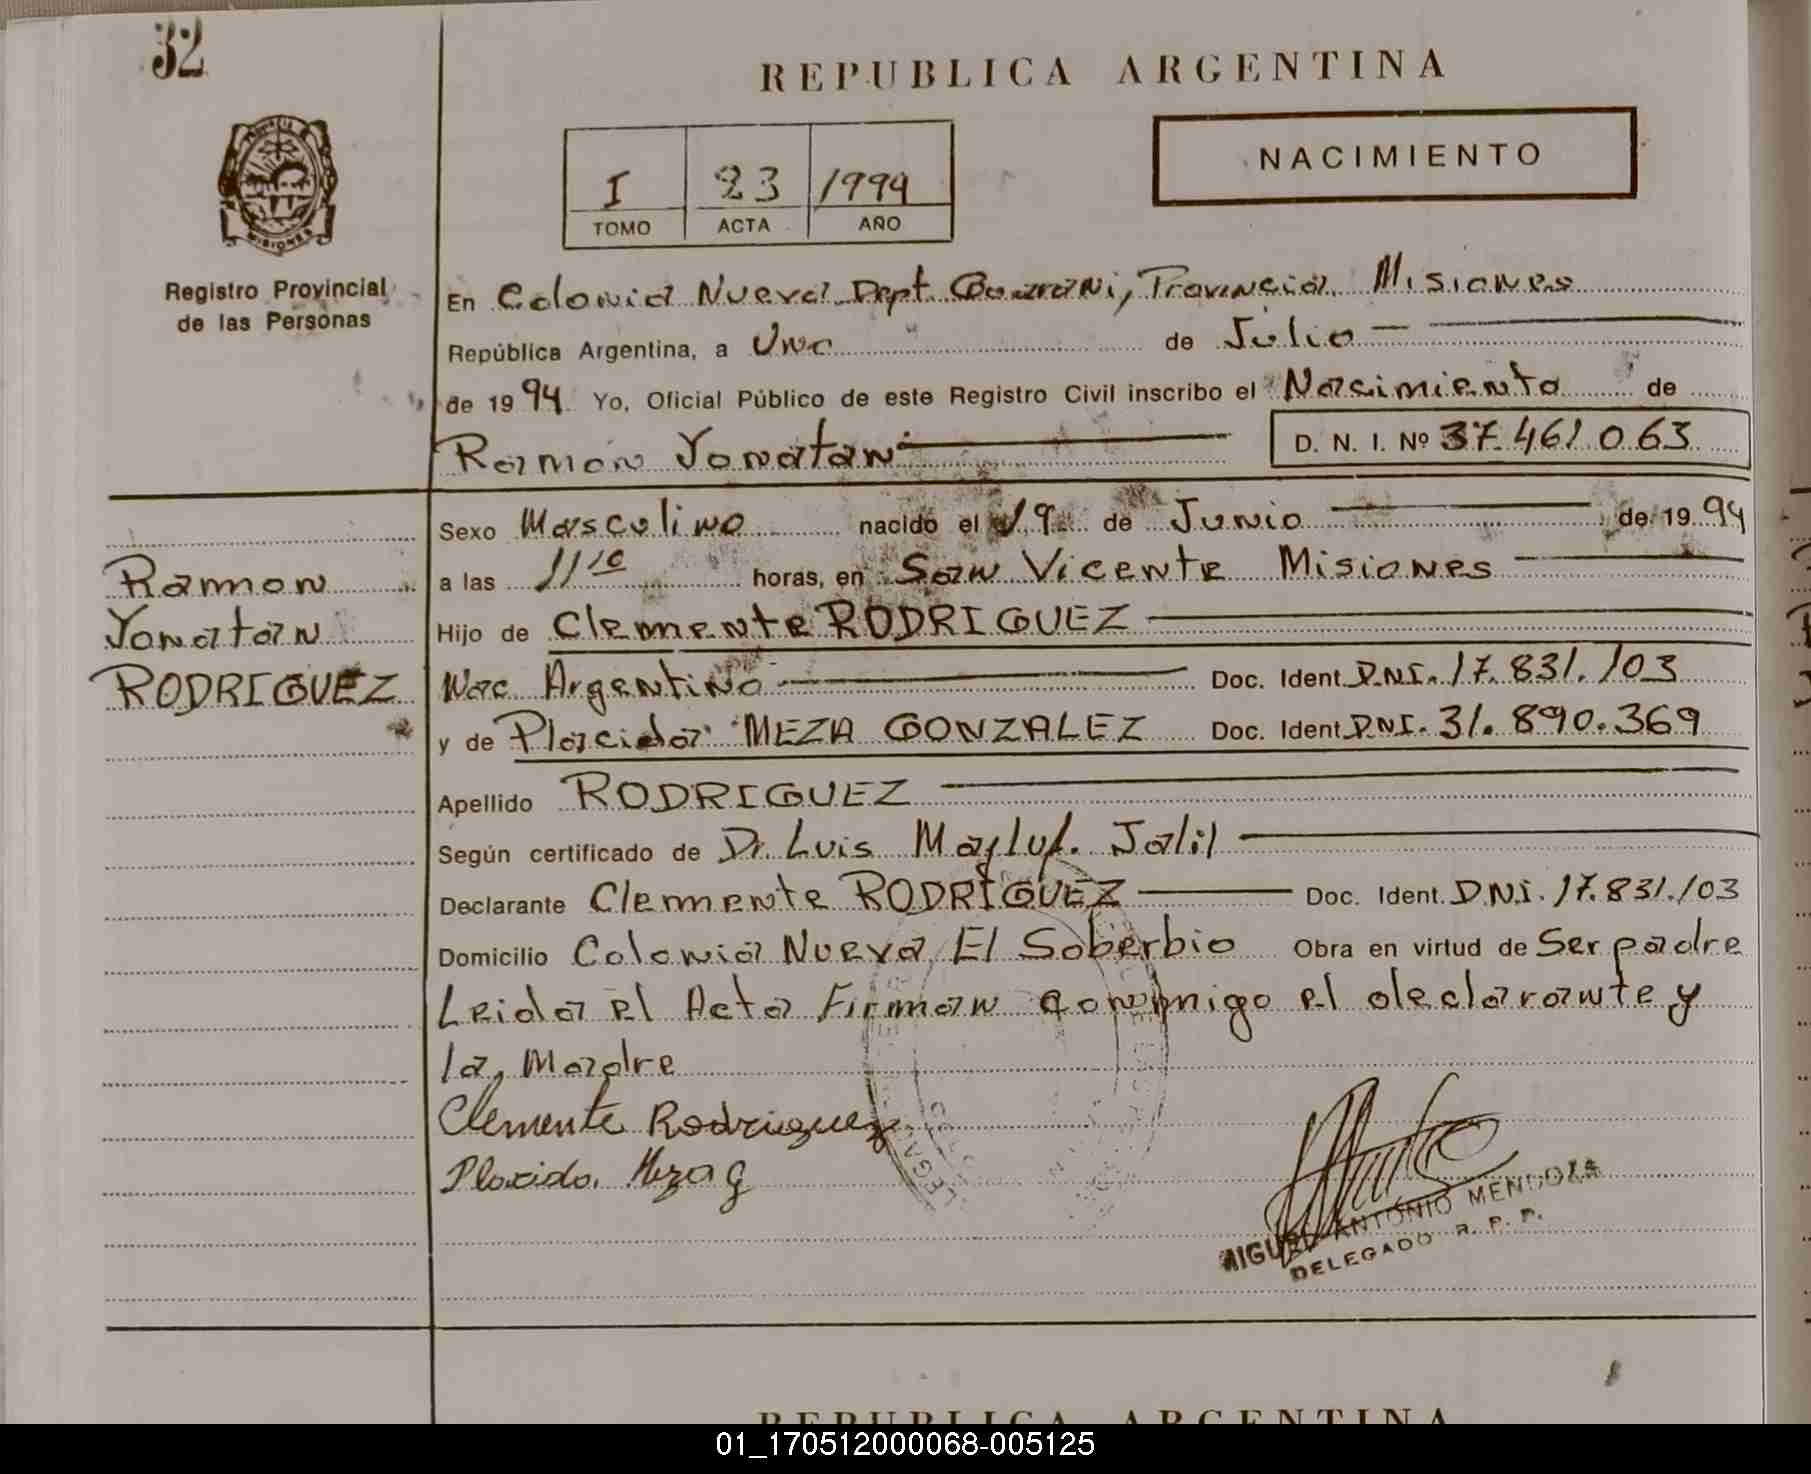 32
REPUBLICA ARGENTINA
NACIMIENTO
I 23 1994
TOMO ACTA AÑO
MISIONES
Registro Provincial
de las Personas
En Colonia Nueva Dept. Guarani, Provincia Misiones
República Argentina, a Uno de Julio
de 1994 Yo, Oficial Público de este Registro Civil inscribo el Nacimiento de
Ramon Yonatan D. N. I. Nº 37.461.063
Sexo Masculino nacido el 19 de Junio de 1994
a las 11 10 horas, en San Vicente Misiones
Hijo de Clemente RODRIGUEZ
Nac Argentina Doc. Ident. D.N.I. 17.831.103
y de Placida MEZA GONZALEZ Doc. Ident. D.N.I. 31.890.369
Apellido RODRIGUEZ
Según certificado de Dr. Luis Jalil
Declarante Clemente RODRIGUEZ Doc. Ident. D.N.I. 17.831.103
Domicilio Colonia Nueva El Soberbio Obra en virtud de Ser padre
Leida el Acta Firman conmigo el declarante y
la Madre
Clemente Rodriguez
Placida Meza G
MIGUEL ANTONIO MENDOZA
DELEGADO R. P. P.
Ramon
Yonatan
RODRIGUEZ
REPUBLICA ARGENTINA
01_170512000068-005125